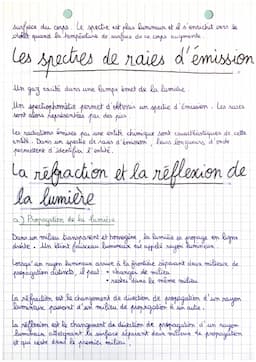 surface du corps. Le spectre est plus lumineux et il s'enrichit vers le
violet quand la température de surface de ce corps augmente.
Les spectres de raies d'émission
Un gaz excité dans une lampe émet de la lumière.
Un spectrophotomètre permet d'obtenir un spectre d'émission. Les raies
sont alors représentées par des pics.
Les radiations émises par une entité chimique sont caractéristiques de cette
entité. Dans un spectre de raies d'émission, leurs longueurs d'onde
permettent d'identifier l'entité.
La réfraction et la réflexion de
la lumière
a.) Propagation de la lumière
Dans un milieu transparent et homogène, la lumière se propage en ligne
droite. Un faisceau lumineux est appelé rayon lumineux.
Lorsqu'un rayon lumineux arrive à la frontière séparant deux milieux de
propagation distincts, il peut : • changer de milieu
• rester dans le même milieu.
La réfraction est le changement de direction de propagation d'un rayon
lumineux passant d'un milieu de propagation à un autre.
La réflexion est le changement de direction de propagation d'un rayon
lumineux atteignant la surface séparant deux milieux de propagation
et qui reste dans le premier milieu.